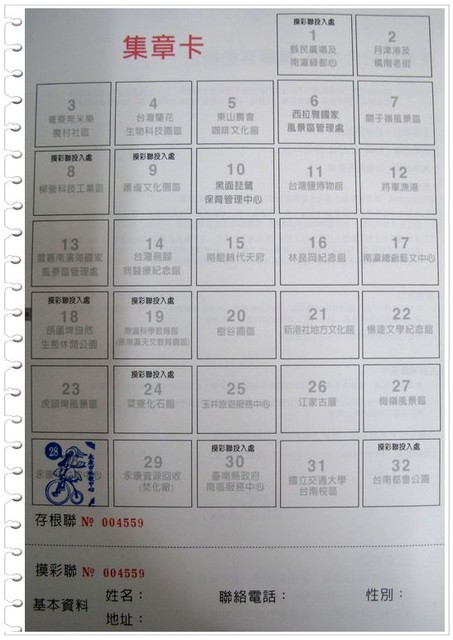 集章卡
摸彩聯投入處
1
縣民廣場及
南瀛綠都心
2
月津港及
橋南老街
3
菁寮無米樂
農村社區
4
台灣蘭花
生物科技園區
5
東山農會
咖啡文化館
6
西拉雅國家
風景區管理處
7
關子嶺風景區
摸彩聯投入處
8
柳營科技工業區
摸彩聯投入處
9
蕭壠文化園區
10
黑面琵鷺
保育管理中心
11
台灣鹽博物館
12
將軍漁港
13
雲嘉南濱海國家
風景區管理處
14
台灣烏腳
病醫療紀念館
15
南鯤鯓代天府
16
林良岡紀念館
17
南瀛總爺藝文中心
摸彩聯投入處
18
葫蘆埤自然
生態休閒公園
摸彩聯投入處
19
南瀛科學教育館
(原南瀛天文教育園區)
20
樹谷園區
21
新港社地方文化館
22
楊逵文學紀念館
23
虎頭埤風景區
摸彩聯投入處
24
菜寮化石館
25
玉井旅遊服務中心
26
江家古厝
27
梅嶺風景區
28
29
永康資源回收
(焚化廠)
摸彩聯投入處
30
臺南縣政府
南區服務中心
31
國立交通大學
台南校區
摸彩聯投入處
32
台南都會公園
存根聯 № 004559
摸彩聯 № 004559
基本資料 姓名： 聯絡電話： 性別：
地址：